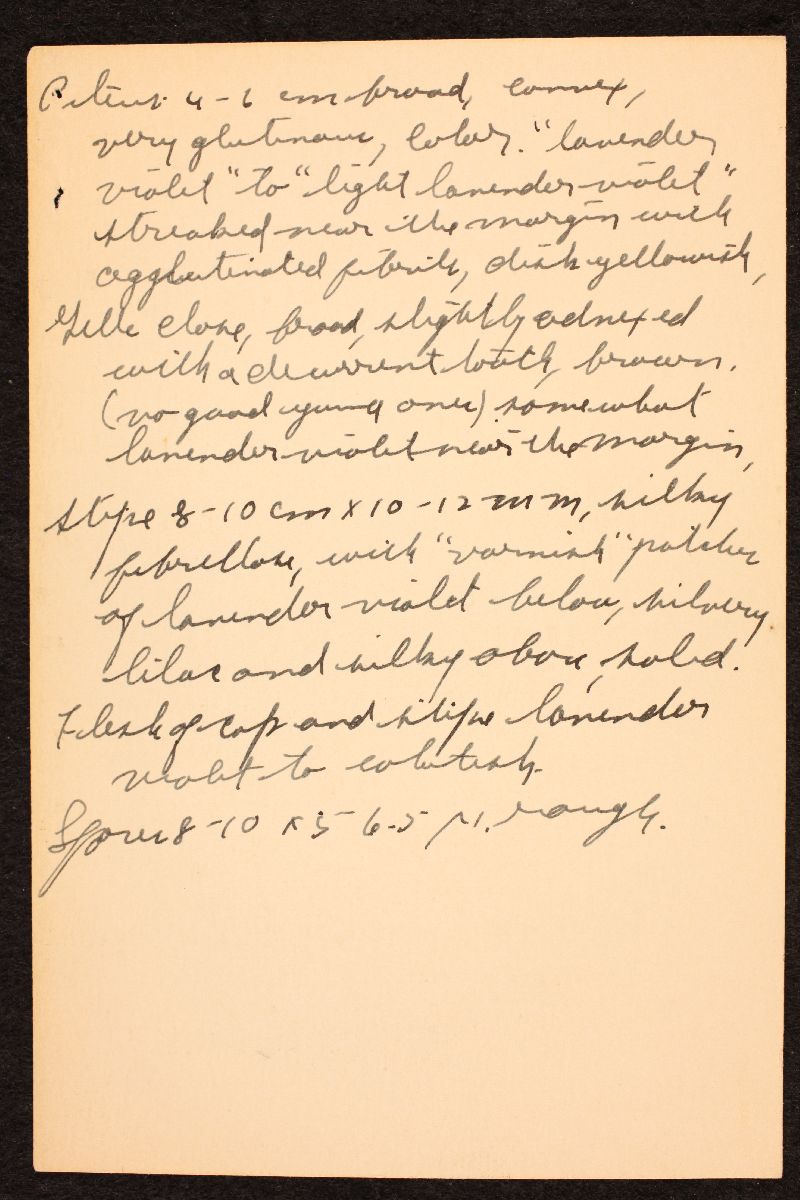 Pileus 4-6 cm broad, convex,
very glutinous, color. "lavender
violet" to "light lavender-violet"
streaked near the margin with
agglutinated fibrils, disk yellowish,
Gills close, broad, slightly adnexed
with a decurrent tooth, brown.
(no good young ones) somewhat
lavender-violet near the margin,
Stipe 8-10 cm x 10-12 mm, silky
fibrillose, with "varnish" patches
of lavender violet below, silvery
lilac and silky above, solid.
Flesh of cap and stipe lavender
violet to whitish.
Spores 8-10 x 5-6.5 μ, rough.